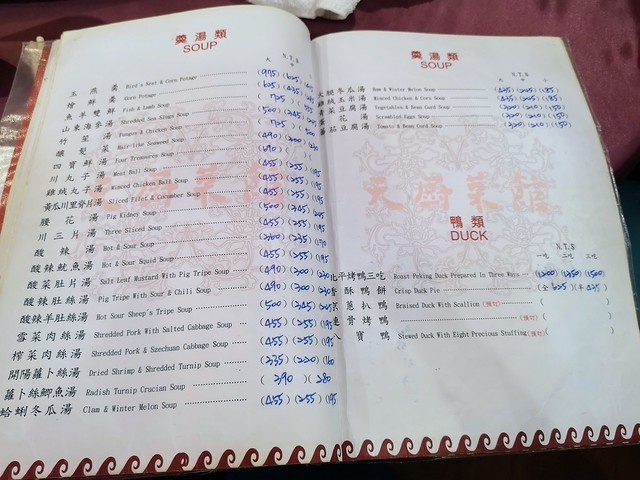 羹湯類
SOUP
N.T.$
玉燕羹 Bird's Nest & Corn Potage
燴鮮羹 Corn Potage
魚羊雙鮮 Fish & Lamb Soup
山東海參湯 Shredded Sea Slugs Soup
竹笙湯 Fungus & Chicken Soup
釀髮菜 Hair-like Seaweed Soup (690)
四寶鮮湯 Four Treasures Soup (455)(255)(195
川丸子湯 Meat Ball Soup (455)(255)(195
雞絨丸子湯 Minced Chicken Ball Soup (455)(255)(195
黃瓜川里脊片湯 Sliced Filet & Cucumber Soup (455)(255)(195
腰花湯 Pig Kidney Soup (500)(345)(205
川三片湯 Three Sliced Soup (455)(255)(195
酸辣湯 Hot & Sour Soup (260)(235)(170
酸辣魷魚湯 Hot & Sour Squid Soup (455)(255)(195
酸菜肚片湯 Salt Leaf Mustard With Pig Tripe Soup (490)(300)(230
酸辣肚絲湯 Pig Tripe With Sour & Chili Soup (490)(300)(230
酸辣羊肚絲湯 Hot Sour Sheep's Tripe Soup (500)(345)(205
雪菜肉絲湯 Shredded Pork With Salted Cabbage Soup (455)(255)(195
榨菜肉絲湯 Shredded Pork & Szechuan Cabbage Soup (455)(255)(195
開陽蘿卜絲湯 Dried Shrimp & Shredded Turnip Soup (335)(220)(160
蘿卜絲鯽魚湯 Radish Turnip Crucian Soup ( 390 )( 280
蛤蜊冬瓜湯 Clam & Winter Melon Soup (455)(255)(195
羹湯類
SOUP
N.T.$
腿冬瓜湯 Ham & Winter Melon Soup (435)(205)(185)
雞絨玉米湯 Minced Chicken & Corn Soup (435)(205)(185)
菜豆腐湯 Vegetables & Bean Curd Soup (220)(210)(150)
花湯 Scrambled Eggs Soup (220)(210)(150)
蕃茄豆腐湯 Tomato & Bean Curd Soup (220)(210)(150)
天廚菜館
鴨類
DUCK
N.T.$
一吃 二吃 三吃
北平烤鴨三吃 Roast Peking Duck Prepared In Three Ways (1200)(1350)(1500)
香酥鴨餅 Crisp Duck Pie (全625)(半435)
京蔥扒鴨 Braised Duck With Scallion (預訂)( )
骨烤鴨 (預訂)( )
八寶鴨 Stewed Duck With Eight Precious Stuffing (預訂)( )